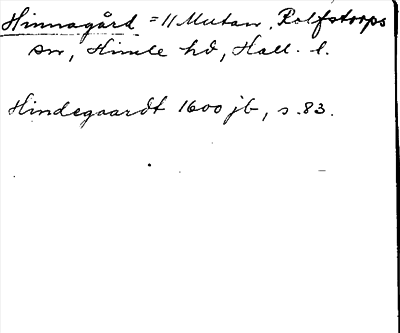 Hinnagård = 11 Mutan, Rolfstorps
sn, Himle hd, Hall. l.
Hindegaardt 1600 jb, s. 83.